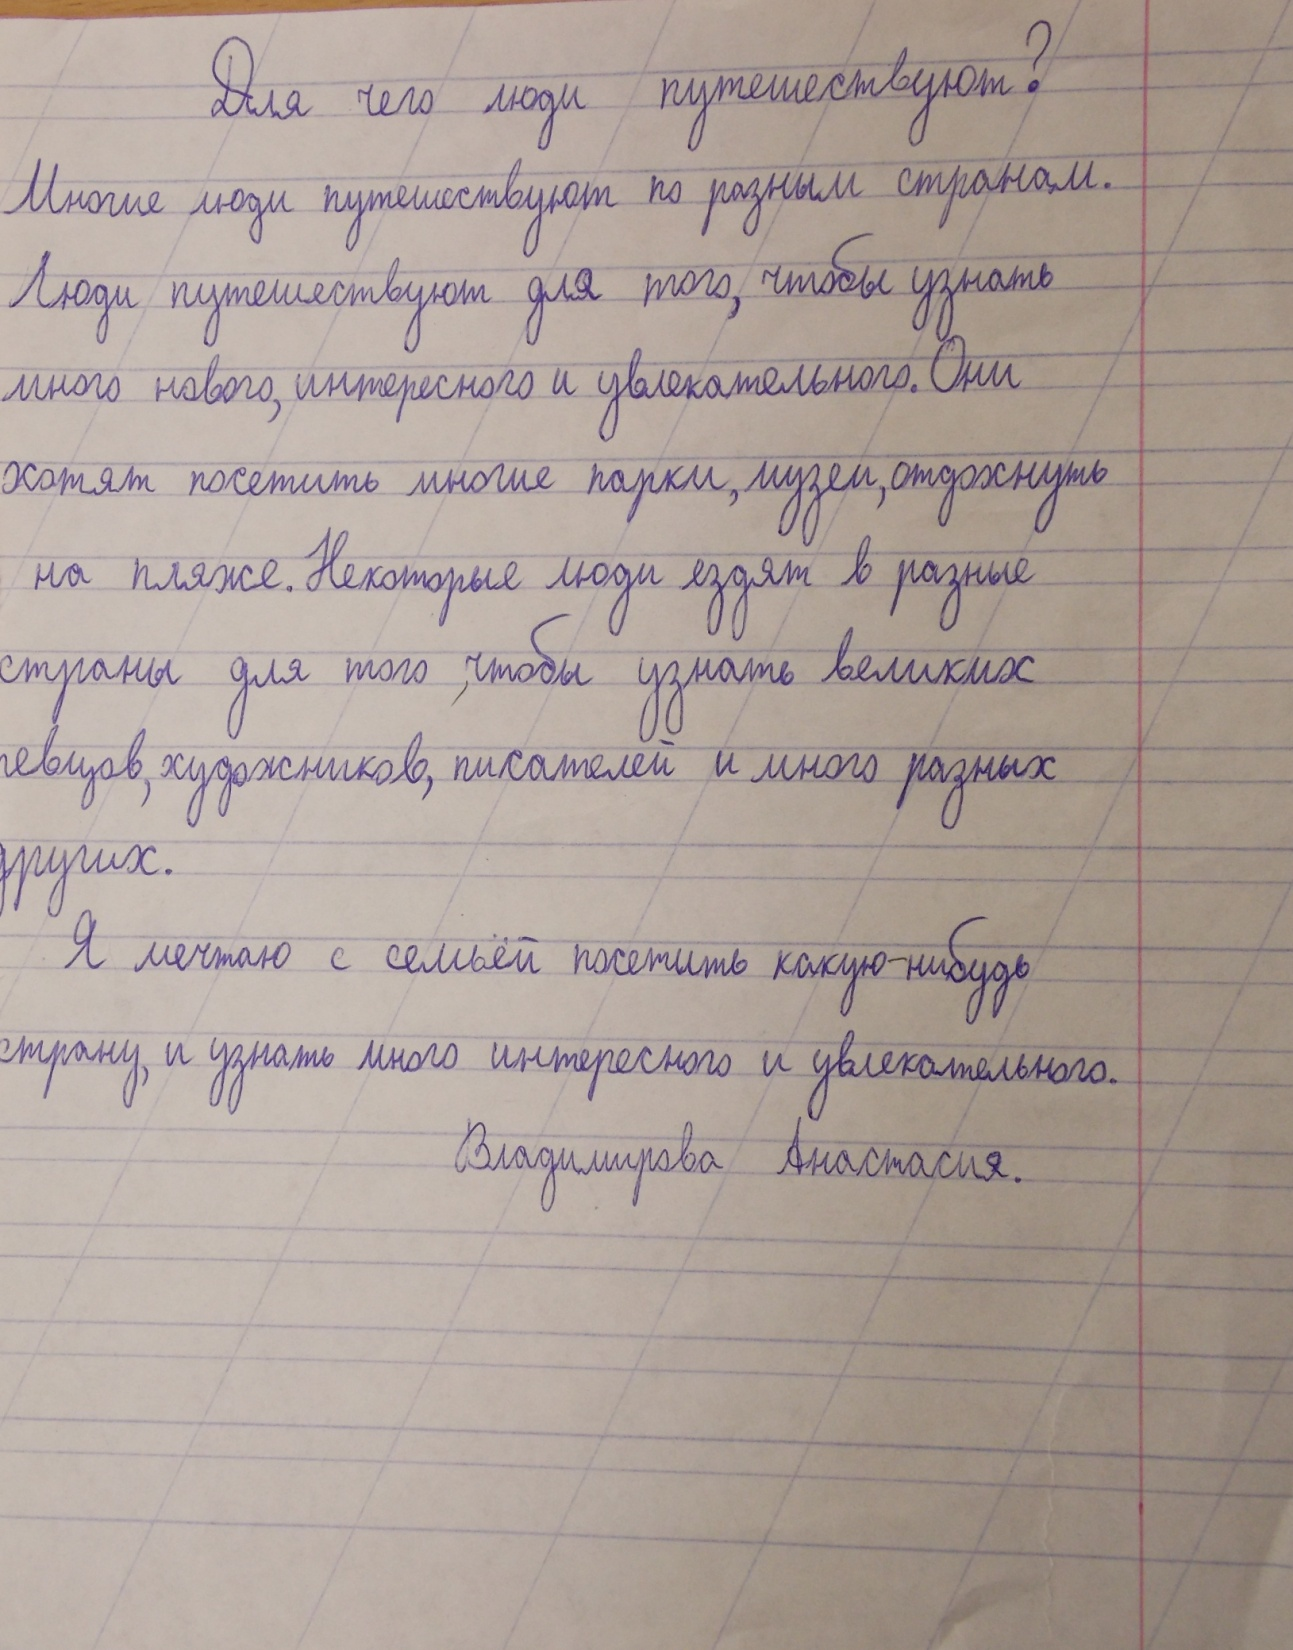 Для чего люди путешествуют?
Многие люди путешествуют по разным странам.
Люди путешествуют для того, чтобы узнать
много нового, интересного и увлекательного. Они
хотят посетить многие парки, музеи, отдохнуть
на пляже. Некоторые люди ездят в разные
страны для того, чтобы узнать великих
певцов, художников, писателей и много разных
других.
Я мечтаю с семьёй посетить какую-нибудь
страну, и узнать много интересного и увлекательного.
Владимирова Анастасия.